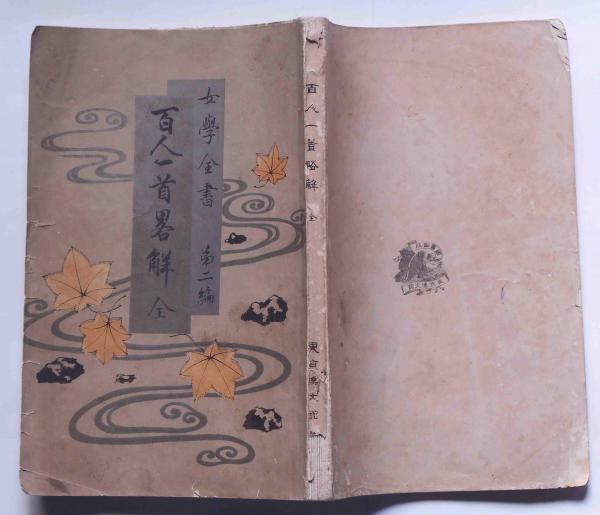 女學全書 第二編
百人一首畧解 全
百人一首畧解 全
東京博文館